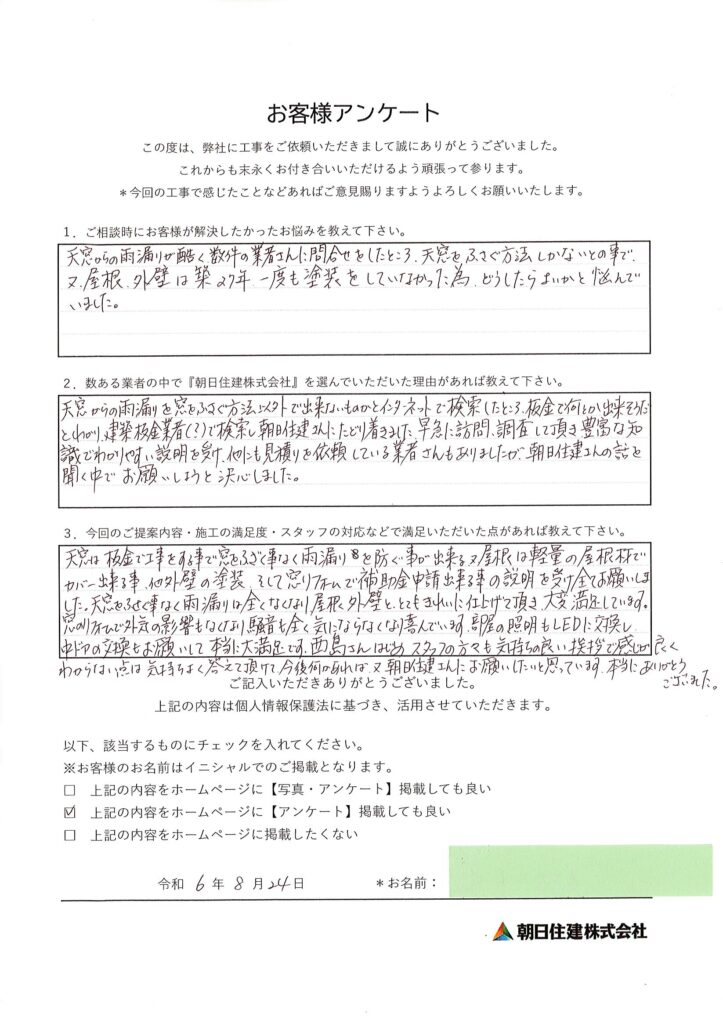 お客様アンケート
この度は、弊社に工事をご依頼いただきまして誠にありがとうございました。
これからも末永くお付き合いいただけるよう頑張って参ります。
＊今回の工事で感じたことなどあればご意見賜りますようよろしくお願いいたします。
1．ご相談時にお客様が解決したかったお悩みを教えて下さい。
天窓からの雨漏りが酷く数件の業者さんに問合せをしたところ、天窓をふさぐ方法しかないとの事で、
又、屋根、外壁は築27年、一度も塗装をしていなかった為、どうしたらよいかと悩んで
いました。
2．数ある業者の中で『朝日住建株式会社』を選んでいただいた理由があれば教えて下さい。
天窓からの雨漏りを窓をふさぐ方法以外で出来ないものかとインターネットで検索したところ、板金で何とか出来そうだ
とわかり、建築板金業者(？)で検索し朝日住建さんにたどり着きました。早急に訪問、調査して頂き豊富な知
識でわかりやすい説明を受け、他にも見積りを依頼している業者さんもありましたが、朝日住建さんの話を
聞く中でお願いしようと決心しました。
3．今回のご提案内容・施工の満足度・スタッフの対応などで満足いただいた点があれば教えて下さい。
天窓は板金で工事をする事で窓をふさぐ事なく雨漏りを防ぐ事が出来る又屋根は軽量の屋根材で
カバー出来る事、他外壁の塗装、そして窓リフォームで補助金申請出来る事の説明を受け全てお願いしま
した。天窓をふさぐ事なく雨漏りは全くなくなり屋根、外壁と、ともきれいに仕上げて頂き、大変満足しています。
窓のリフォームで外気の影響もなくなり騒音も全く気にならなくなり喜んでいます。部屋の照明もLEDに交換し、
中ドアの交換もお願いして本当に大満足です。西島さんはじめスタッフの方々も気持ちの良い挨拶で感じが良く
わからない点は気持ちよく答えて頂けて、今後何かあれば、又朝日住建さんにお願いしたいと思っています。本当にありがとう
ございました。
ご記入いただきありがとうございました。
上記の内容は個人情報保護法に基づき、活用させていただきます。
以下、該当するものにチェックを入れてください。
※お客様のお名前はイニシャルでのご掲載となります。
☐ 上記の内容をホームページに【写真・アンケート】掲載しても良い
☑ 上記の内容をホームページに【アンケート】掲載しても良い
☐ 上記の内容をホームページに掲載したくない
令和 6 年 8 月 24 日 ＊お名前：
朝日住建株式会社